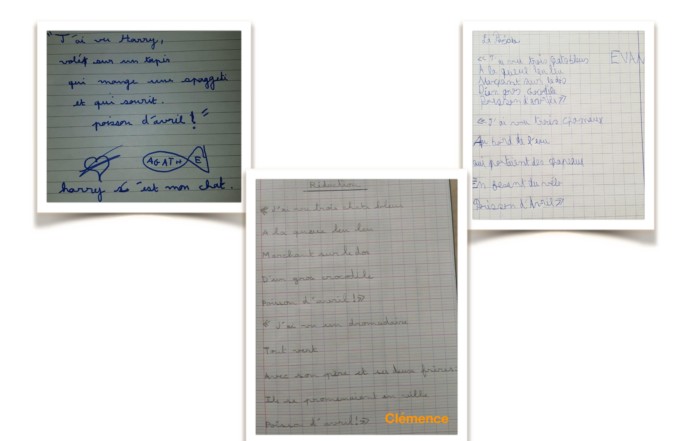 "J'ai vu Harry,
volé sur un tapis
qui mange une spaggeti
et qui sourit.
poisson d'avril !"
AGATHE
harry c'est mon chat.
Rédaction
« J'ai vu trois chats bleus
A la queue leu leu
Marchant sur le dos
D'un gros crocodile
Poisson d'avril ! »
« J'ai vu un dromadaire
Tout vert
Avec son père et ses deux frères
Ils se promenaient en ville
Poisson d'avril ! »
Clémence
EVAN
« J'ai vu trois chats bleus
A la queue leu leu
sur le dos
D'un gros
Poisson d'avril »
« J'ai vu trois chameaux
Au bord de l'eau
qui portaient des chapeaux
En du vélo
Poisson d'Avril »